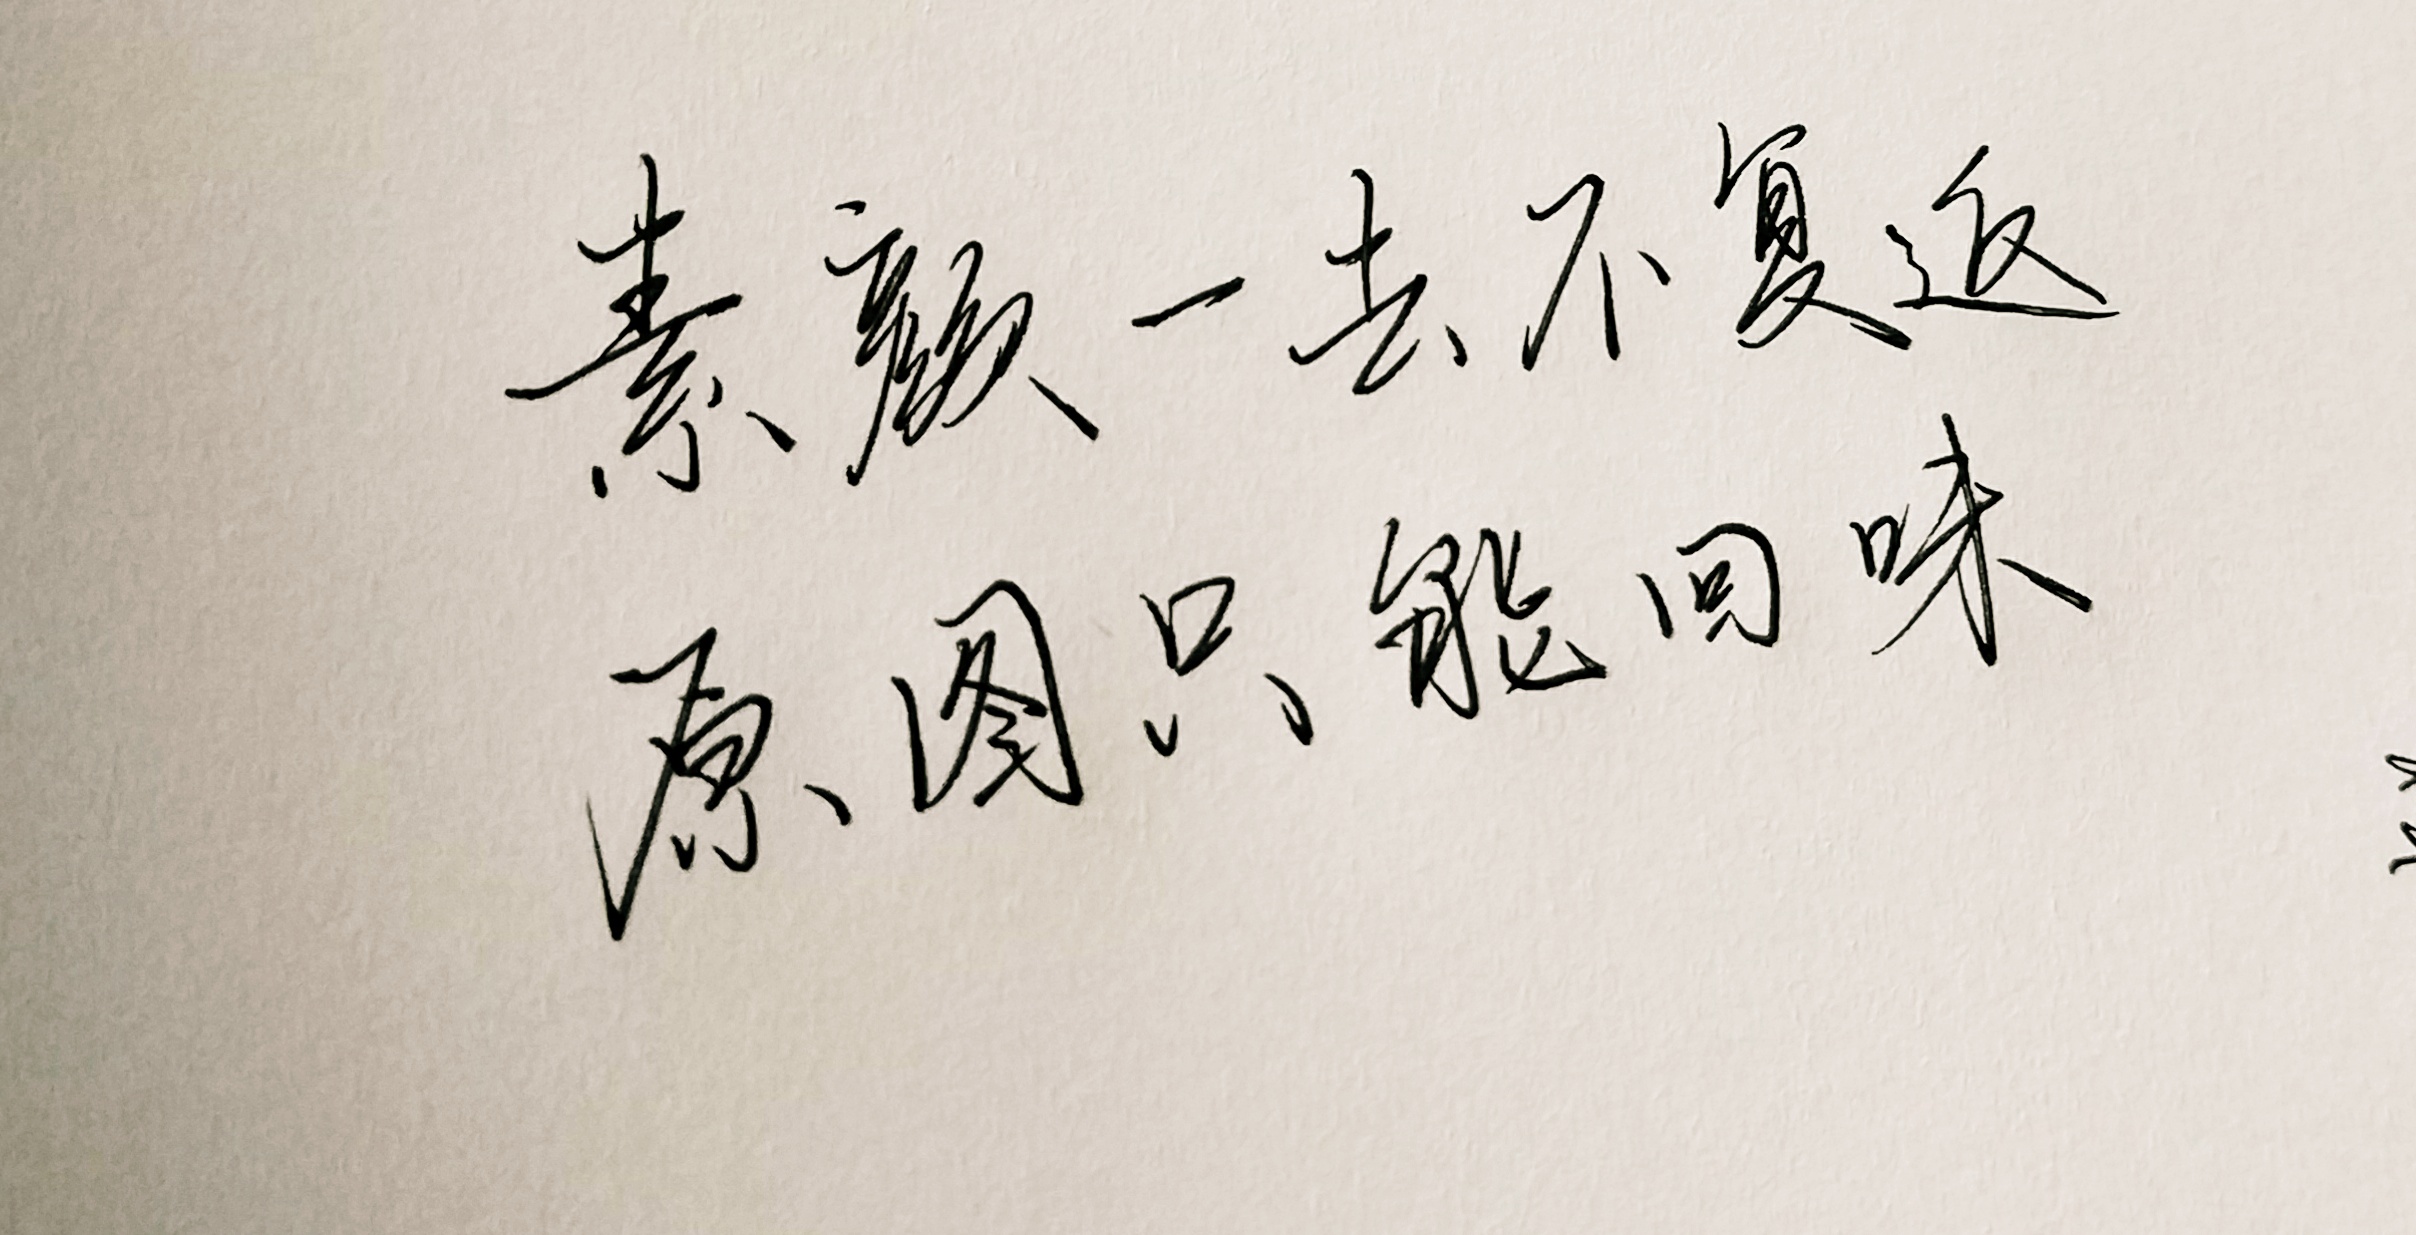 素颜一去不复返
原图只能回味